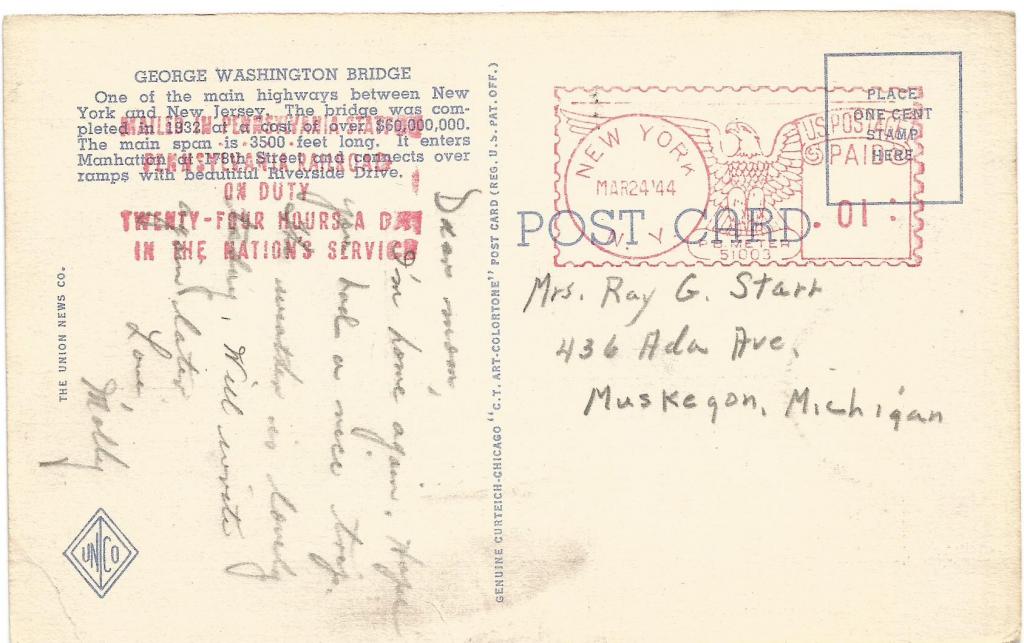 GEORGE WASHINGTON BRIDGE
One of the main highways between New
York and New Jersey. The bridge was com-
pleted in 1932 at a cost of over $60,000,000.
The main span is 3500 feet long. It enters
Manhattan at 178th Street and connects over
ramps with beautiful Riverside Drive.
MAILED IN PENNSYLVANIA STATION
PENNSYLVANIA RAILROAD
ON DUTY
TWENTY-FOUR HOURS A DAY
IN THE NATION'S SERVICE
Dear mom,
I'm home again. Hope
you had a nice trip.
The weather is lovely
today. Will write
again later
Love,
Molly
THE UNION NEWS CO.
UNCO
GENUINE CURTEICH-CHICAGO "C.T. ART-COLORTONE" POST CARD (REG. U.S. PAT. OFF.)
POST CARD
NEW YORK
MAR24'44
N. Y.
U.S. POSTAGE
PAID
.01
P.B. METER
51003
PLACE
ONE CENT
STAMP
HERE
Mrs. Ray G. Starr
436 Ada Ave.
Muskegon, Michigan